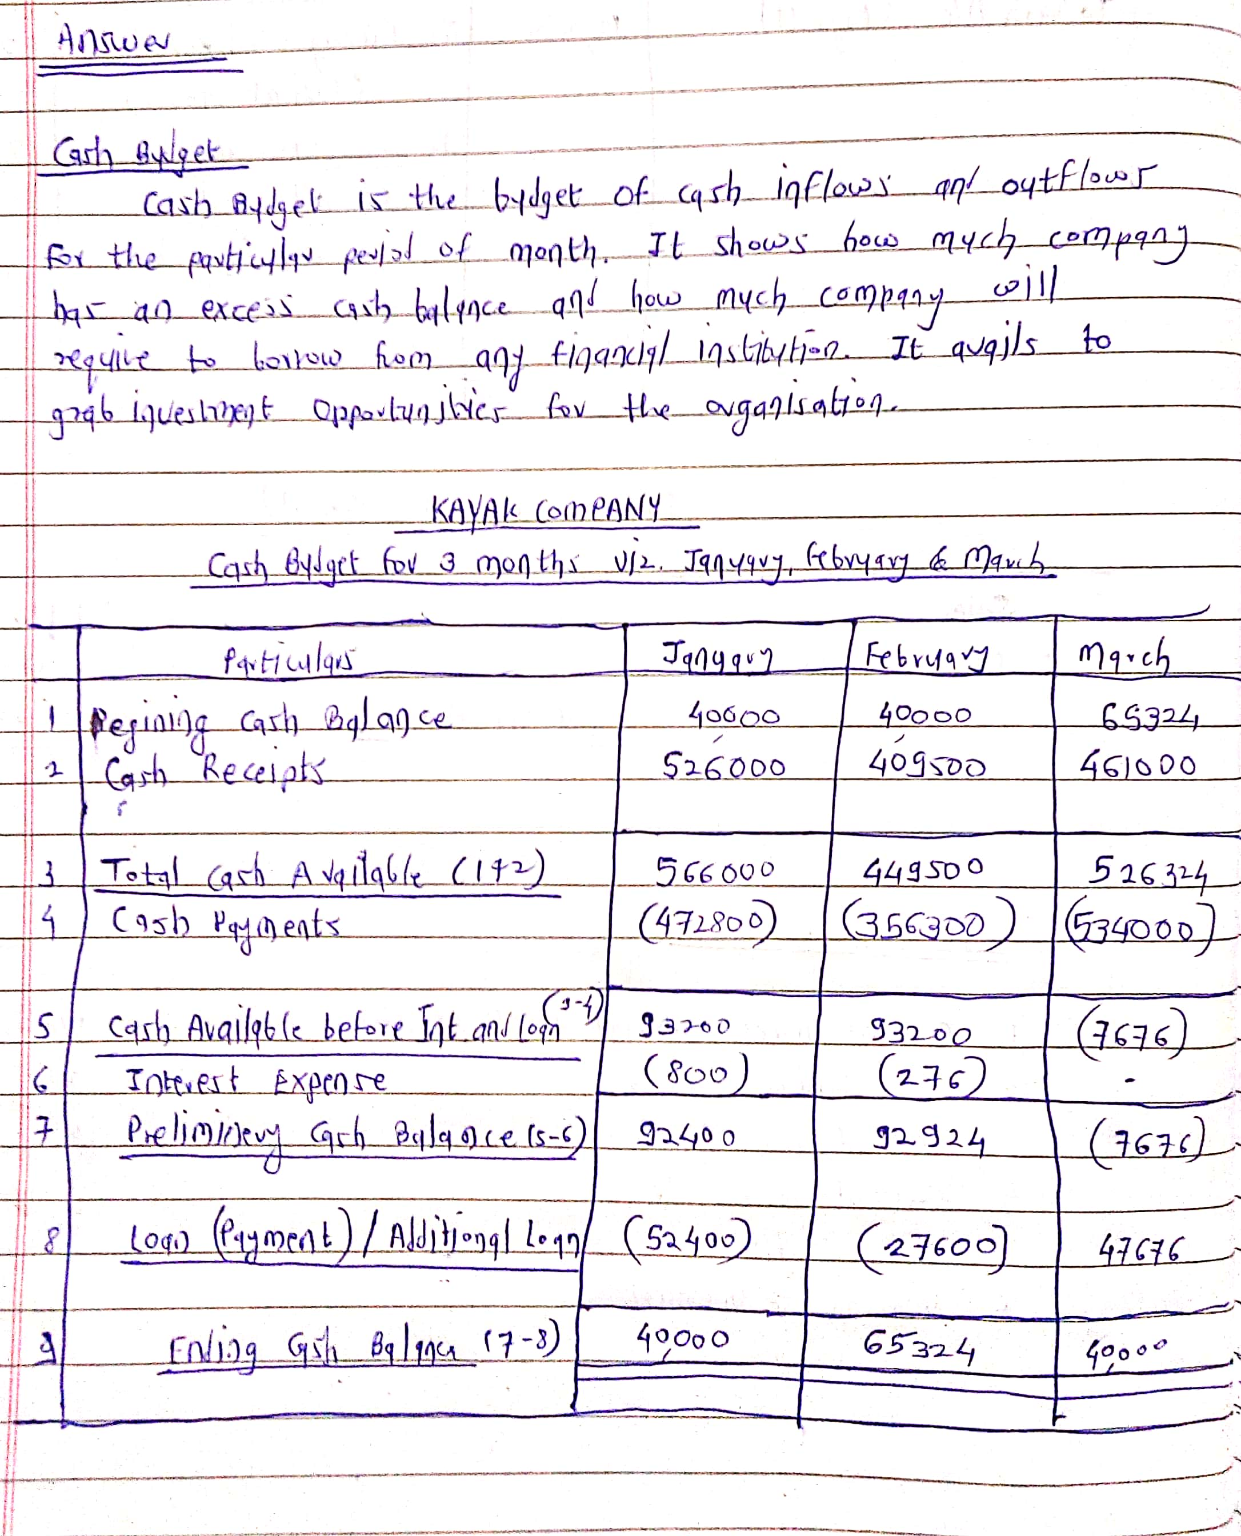 Answer
Cash Budget
Cash Budget is the budget of cash inflows and outflows
for the particular period of month. It shows how much company
has an excess cash balance and how much company will
require to borrow from any financial institution. It avails to
grab investment opportunities for the organisation.
KAYAK COMPANY
Cash Budget for 3 months viz. January, February & March
Particulars January February March
1 Begining Cash Balance 40000 40000 65324
2 Cash Receipts 526000 409500 461000
3 Total Cash Available (1+2) 566000 449500 526324
4 Cash Payments (472800) (356300) (534000)
5 Cash Available before Int and loan (3-4) 93200 93200 (7676)
6 Interest Expense (800) (276) -
7 Preliminery Cash Balance (5-6) 92400 92924 (7676)
8 Loan (Payment) / Additional Loan (52400) (27600) 47676
9 Ending Cash Balance (7-8) 40000 65324 40000